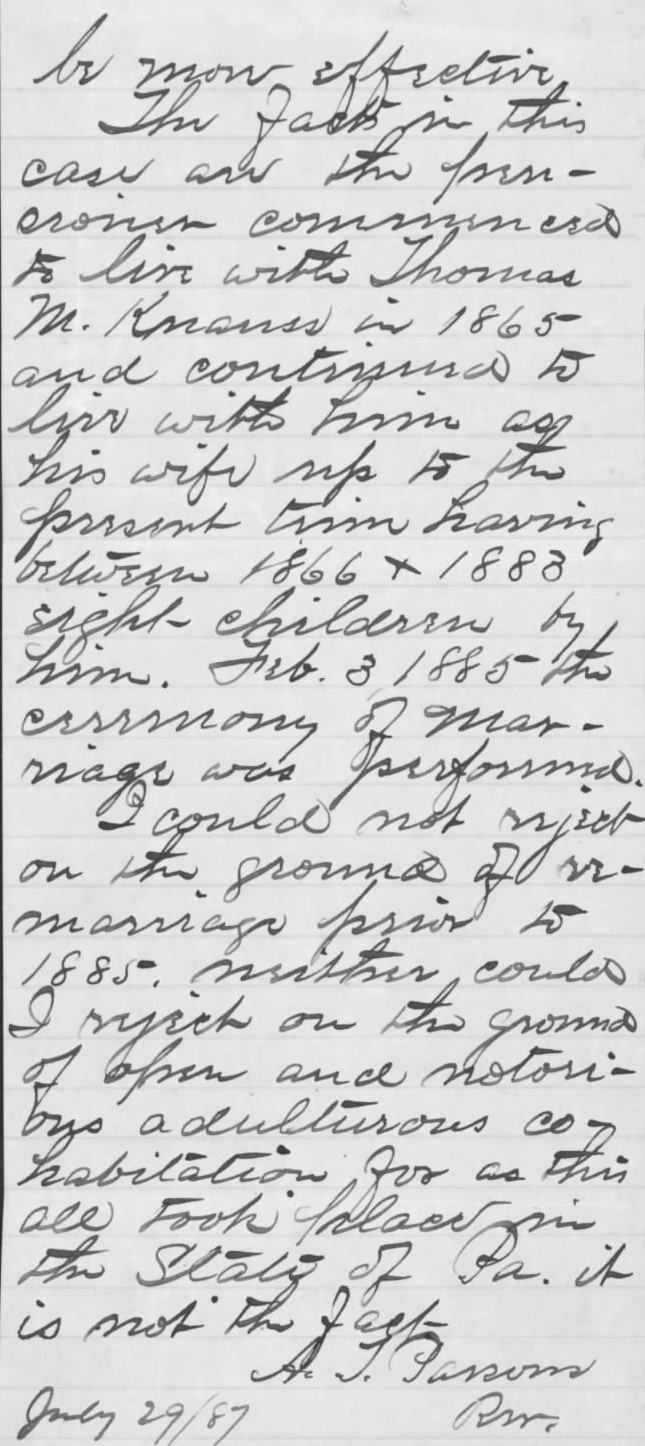 be more effective.
The facts in this
case are the pen-
cioner commenced
to live with Thomas
M. Knauss in 1865
and continued to
live with him as
his wife up to the
present time having
between 1866 + 1883
eight children by
him. Feb. 3 1885 the
ceremony of mar-
riage was performed.
I could not reject
on the ground of re-
marriage prior to
1885, neither could
I reject on the ground
of open and notori-
ous adulturous co-
habitation for as this
all took place in
the State of Pa. it
is not the fact
A. T. Parsons
July 29/87 Rvr.